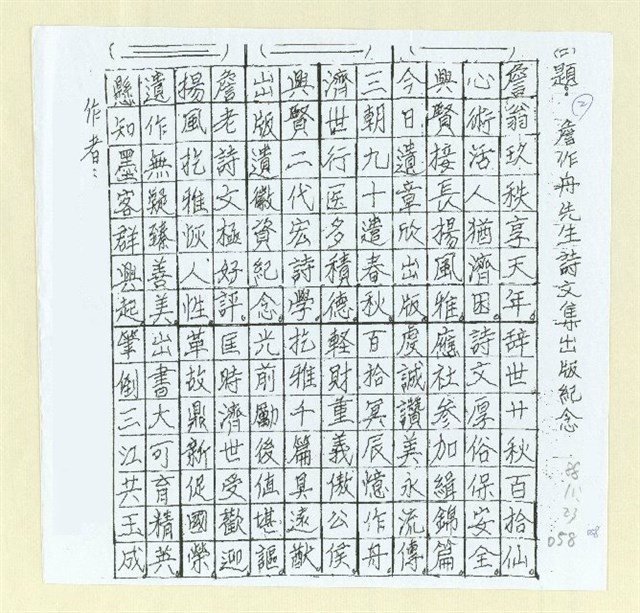 (二)題:詹作舟先生詩文集出版紀念
②
詹翁玖秩享天年。辞世廿秋百拾仙
心術活人猶濟困。詩文厚俗保安全
興賢接長揚風雅。應社參加緝錦篇
今日遺章欣出版。虔誠讚美永流傳
三朝九十遣春秋。百拾冥辰憶作舟
濟世行医多積德。軽財重義傲公侯
興賢二代宏詩學。扢雅千篇具遠猷
出版遺徽資紀念。光前勵後值堪謳
詹老詩文極好評。匡時濟世受歡迎
揚風扢雅恢人性。革故鼎新促國榮
遺作無疑臻善美。出書大可育精英
懸知墨客群興起。筆倒三江共玉成
作者:
11
23
058
058